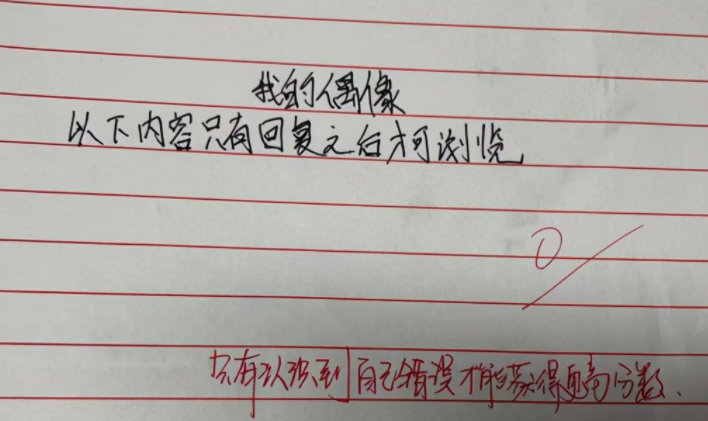 我的偶像
以下内容只有回复之后才可浏览
0
只有认识到自己错误才能获得更高分数.